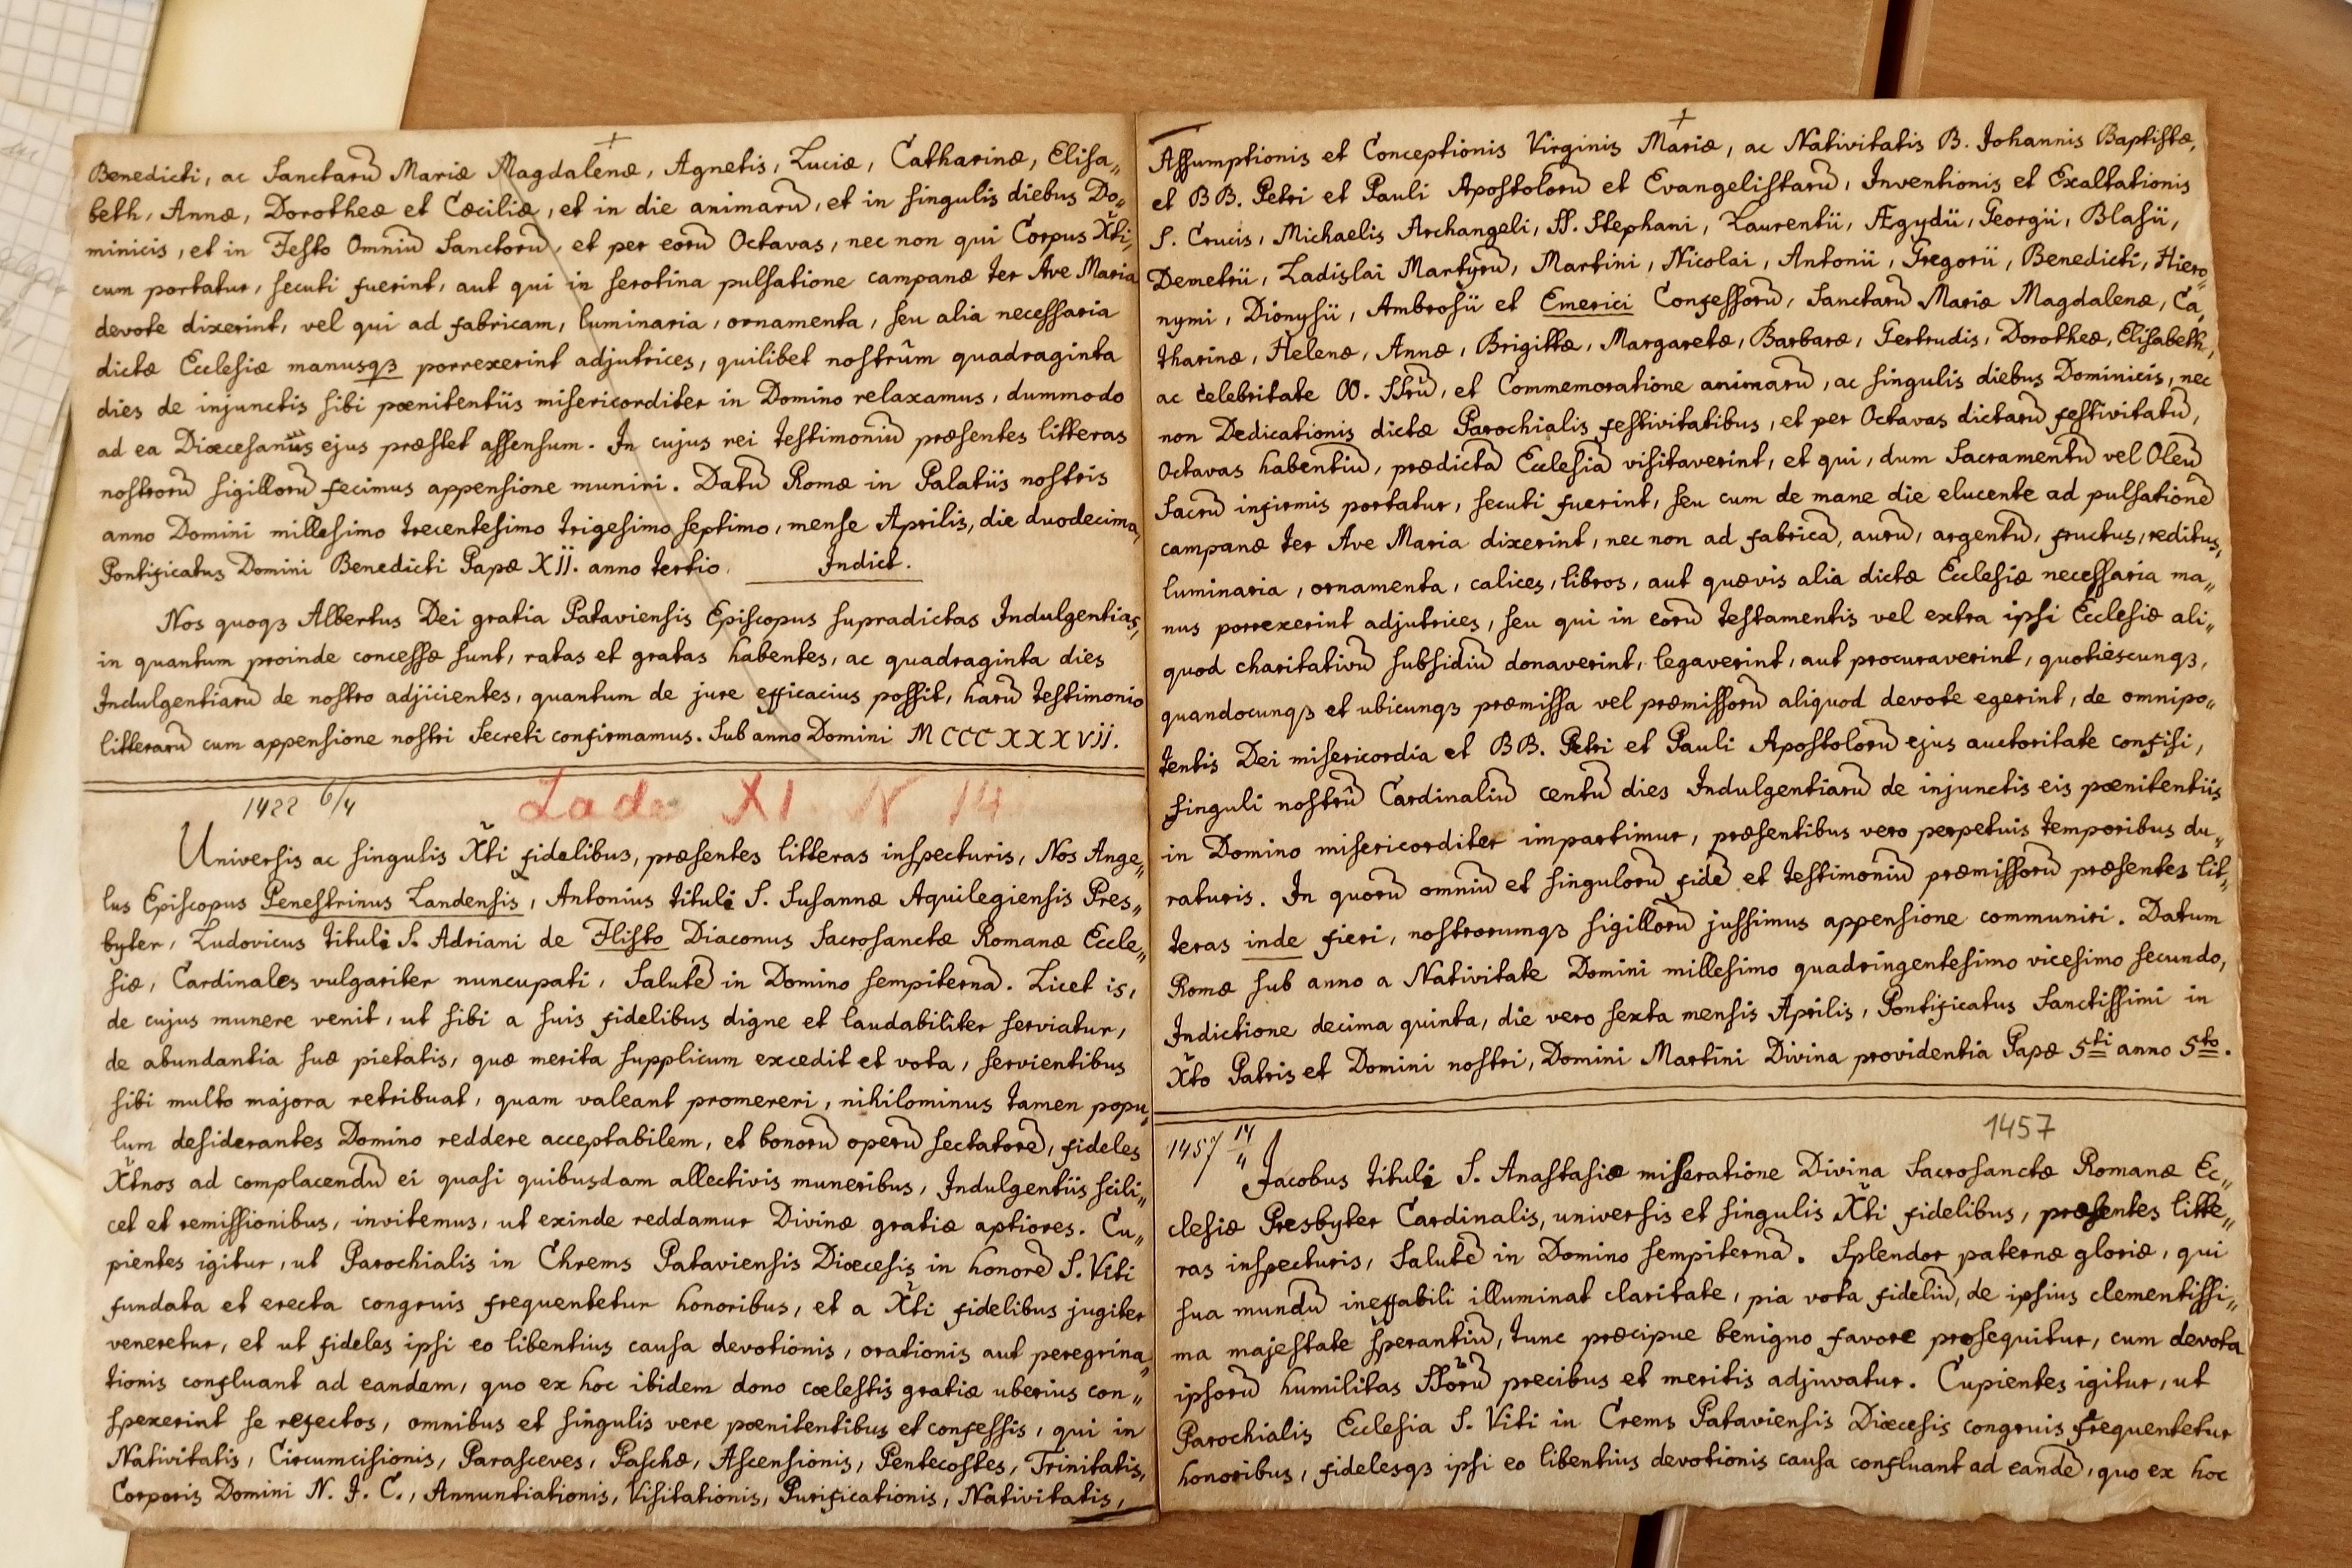 Benedicti, ac Sanctarũ Mariæ Magdalenæ, Agnetis, Luciæ, Catharinæ, Elisa„
beth, Annæ, Dorotheæ et Cæciliæ, et in die animarũ, et in singulis diebus Do„
minicis, et in Festo Omniũ Sanctorũ, et per eorũ Octavas, nec non qui Corpus X̃ti,
cum portatur, secuti fuerint, aut qui in serotina pulsatione campanæ ter Ave Maria
devote dixerint, vel qui ad fabricam, luminaria, ornamenta, seu alia necessaria
dictæ Ecclesiæ manusqꝫ porrexerint adjutrices, quilibet nostrũm quadraginta
dies de injunctis sibi pœnitentiis misericorditer in Domino relaxamus, dummodo
ad ea Diœcesanus ejus præstet assensum. In cujus rei testimoniũ præsentes litteras
nostrorũ sigillorũ fecimus appensione muniri. Datũ Romæ in Palatiis nostris
anno Domini millesimo trecentesimo trigesimo septimo, mense Aprilis, die duodecima,
Pontificatus Domini Benedicti Papæ XII. anno tertio. Indict.
Nos quoqꝫ Albertus Dei gratia Pataviensis Episcopus supradictas Indulgentias,
in quantum proinde concessæ sunt, ratas et gratas habentes, ac quadraginta dies
Indulgentiarũ de nostro adjicientes, quantum de jure efficacius possit, harũ testimonio
litterarũ cum appensione nostri Secreti confirmamus. Sub anno Domini MCCCXXXVII.
1422 6/4 Lade XI N 14
Universis ac singulis X̃ti fidelibus, præsentes litteras inspecturis, Nos Ange„
lus Episcopus Penestrinus Landensis, Antonius tituli S. Susannæ Aquilegiensis Pres„
byter, Ludovicus tituli S. Adriani de Flisto Diaconus Sacrosanctæ Romanæ Eccle„
siæ, Cardinales vulgariter nuncupati, Salutẽ in Domino sempiternã. Licet is,
de cujus munere venit, ut sibi a suis fidelibus digne et laudabiliter serviatur,
de abundantia suæ pietatis, quæ merita supplicum excedit et vota, servientibus
sibi multo majora retribuat, quam valeant promereri, nihilominus tamen popu„
lum desiderantes Domino reddere acceptabilem, et bonorũ operũ sectatorẽ, fideles
X̃tnos ad complacendũ ei quasi quibusdam allectivis muneribus, Indulgentiis scili„
cet et remissionibus, invitemus, ut exinde reddamur Divinæ gratiæ aptiores. Cu„
pientes igitur, ut Parochialis in Chrems Pataviensis Diœcesis in honorẽ S. Viti
fundata et erecta congruis frequentetur honoribus, et a X̃ti fidelibus jugiter
veneretur, et ut fideles ipsi eo libentius causa devotionis, orationis aut peregrina„
tionis confluant ad eandem, quo ex hoc ibidem dono cœlestis gratiæ uberius con„
spexerint se refectos, omnibus et singulis vere pœnitentibus et confessis, qui in
Nativitatis, Circumcisionis, Parasceves, Paschæ, Ascensionis, Pentecostes, Trinitatis,
Corporis Domini N. J. C., Annuntiationis, Visitationis, Purificationis, Nativitatis,
Assumptionis et Conceptionis Virginis Mariæ, ac Nativitatis B. Johannis Baptistæ,
et BB. Petri et Pauli Apostolorũ et Evangelistarũ, Inventionis et Exaltationis
S. Crucis, Michaelis Archangeli, SS. Stephani, Laurentii, Ægydii, Georgii, Blasii,
Demetrii, Ladislai Martyrũ, Martini, Nicolai, Antonii, Gregorii, Benedicti, Hiero„
nymi, Dionysii, Ambrosii et Emerici Confessorũ, Sanctarũ Mariæ Magdalenæ, Ca„
tharinæ, Helenæ, Annæ, Brigittæ, Margaretæ, Barbaræ, Gertrudis, Dorotheæ, Elisabeth,
ac celebritate OO. SSrũ, et Commemoratione animarũ, ac singulis diebus Dominicis, nec
non Dedicationis dictæ Parochialis festivitatibus, et per Octavas dictarũ festivitatũ,
Octavas habentiũ, prædictã Ecclesiã visitaverint, et qui, dum Sacramentũ vel Oleũ
Sacrũ infirmis portatur, secuti fuerint, seu cum de mane die elucente ad pulsationẽ
campanæ ter Ave Maria dixerint, nec non ad fabricã, aurũ, argentũ, fructus, reditus,
luminaria, ornamenta, calices, libros, aut quævis alia dictæ Ecclesiæ necessaria ma„
nus porrexerint adjutrices, seu qui in eorũ testamentis vel extra ipsi Ecclesiæ ali„
quod charitativũ subsidiũ donaverint, legaverint, aut procuraverint, quotiescunqꝫ,
quandocunqꝫ et ubicunqꝫ præmissa vel præmissorũ aliquod devote egerint, de omnipo„
tentis Dei misericordia et BB. Petri et Pauli Apostolorũ ejus auctoritate confisi,
singuli nostrũ Cardinaliũ centũ dies Indulgentiarũ de injunctis eis pœnitentiis
in Domino misericorditer impartimur, præsentibus vero perpetuis temporibus du„
raturis. In quorũ omniũ et singulorũ fidẽ et testimoniũ præmissorũ præsentes lit„
teras inde fieri, nostrorumqꝫ sigillorũ jussimus appensione communiri. Datum
Romæ sub anno a Nativitate Domini millesimo quadringentesimo vicesimo secundo,
Indictione decima quinta, die vero sexta mensis Aprilis, Pontificatus Sanctissimi in
X̃to Patris et Domini nostri, Domini Martini Divina providentia Papæ 5ti anno 5to.
1457
1457 14/4 Jacobus tituli S. Anastasiæ miseratione Divina Sacrosanctæ Romanæ Ec„
clesiæ Presbyter Cardinalis, universis et singulis X̃ti fidelibus, præsentes litte„
ras inspecturis, Salutẽ in Domino sempiternã. Splendor paternæ gloriæ, qui
sua mundũ ineffabili illuminat claritate, pia vota fideliũ, de ipsius clementissi„
ma majestate sperantiũ, tunc præcipue benigno favore prosequitur, cum devota
ipsorũ humilitas SSorũ precibus et meritis adjuvatur. Cupientes igitur, ut
Parochialis Ecclesia S. Viti in Crems Pataviensis Diœcesis congruis frequentetur
honoribus, fidelesqꝫ ipsi eo libentius devotionis causa confluant ad eandẽ, quo ex hoc